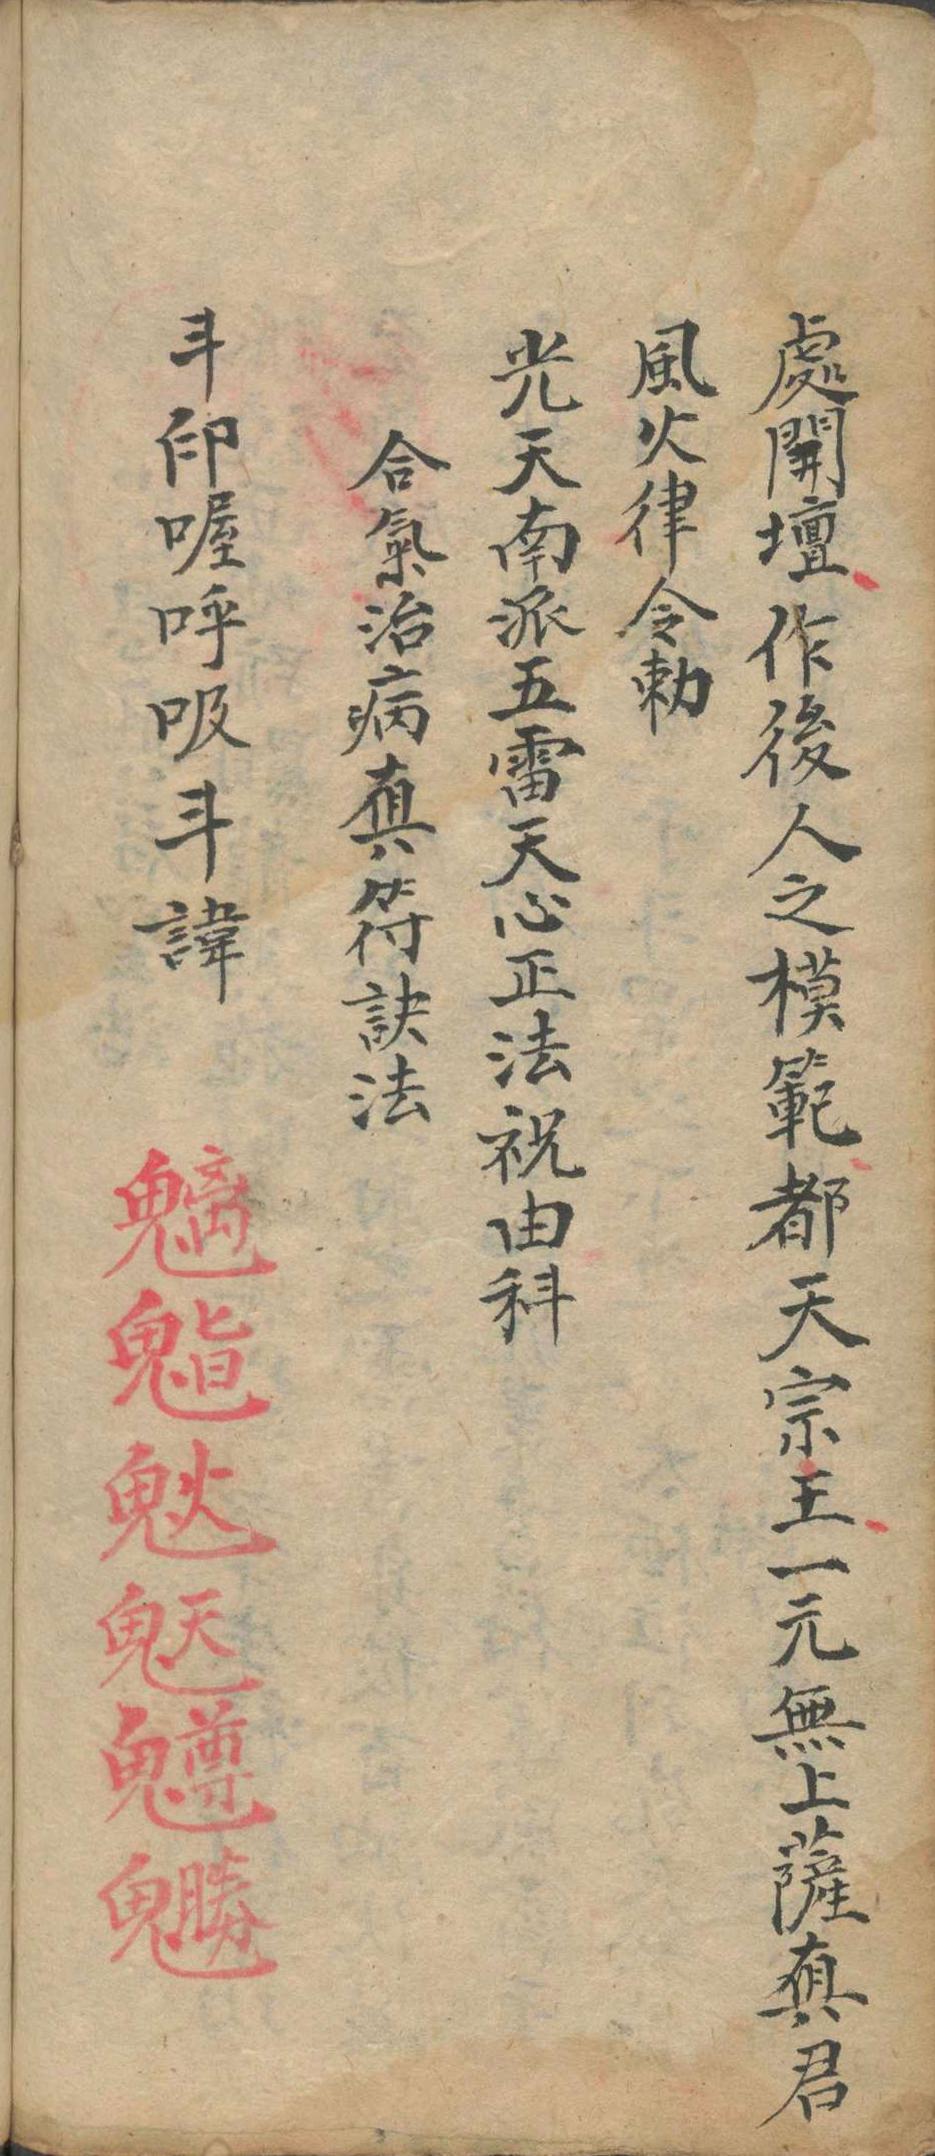 處開壇作後人之模範都天宗王一元無上薩真君
風火律令勅
光天南派五雷天心正法祝由科
合氣治病真符訣法
斗印喔呼吸斗諱